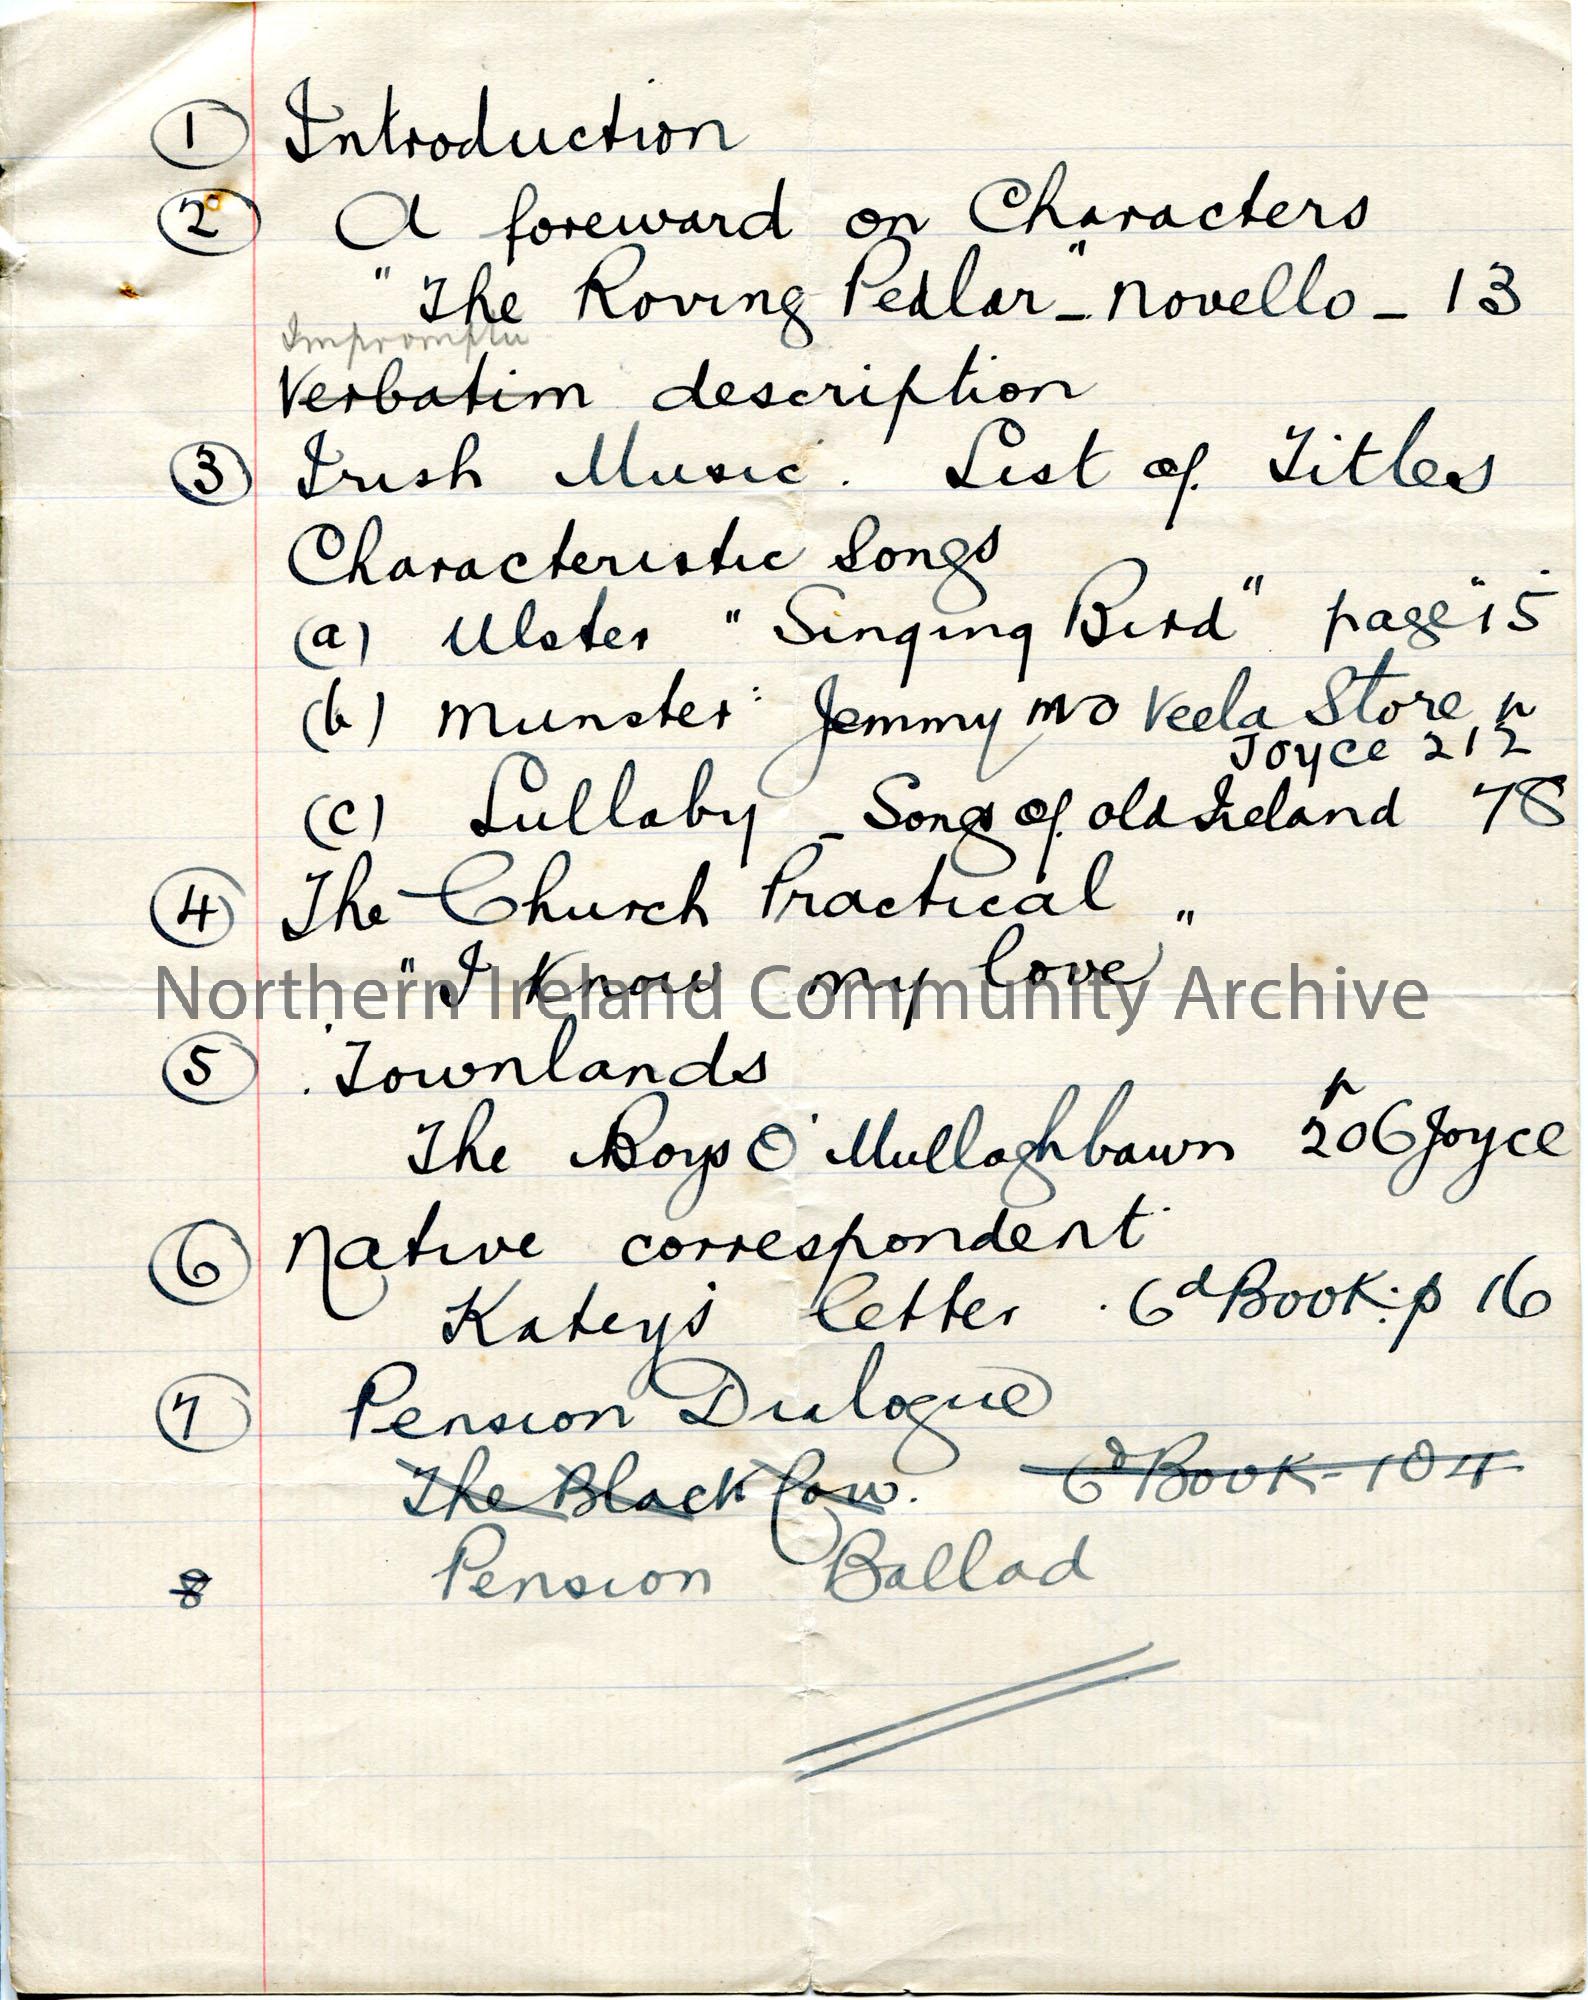 1 Introduction
2 A foreward on Characters
"The Roving Pedlar" - Novello - 13
Impromptu
Verbatim description
3 Irish Music. List of Titles
Characteristic Songs
(a) Ulster "Singing Bird" page 15
(b) Munster: Jemmy mo Veela Store p
Joyce 212
(c) Lullaby - Songs of old Ireland 78
4 The Church Practical
"I know my love"
Northern Ireland Community Archive
5 Townlands
The Boys O' Mullaghbawn p 206 Joyce
6 Native correspondent
Katey's letter. 6d Book: p 16
7 Pension Dialogue
The Black Cow. 6d Book - 104
8 Pension Ballad